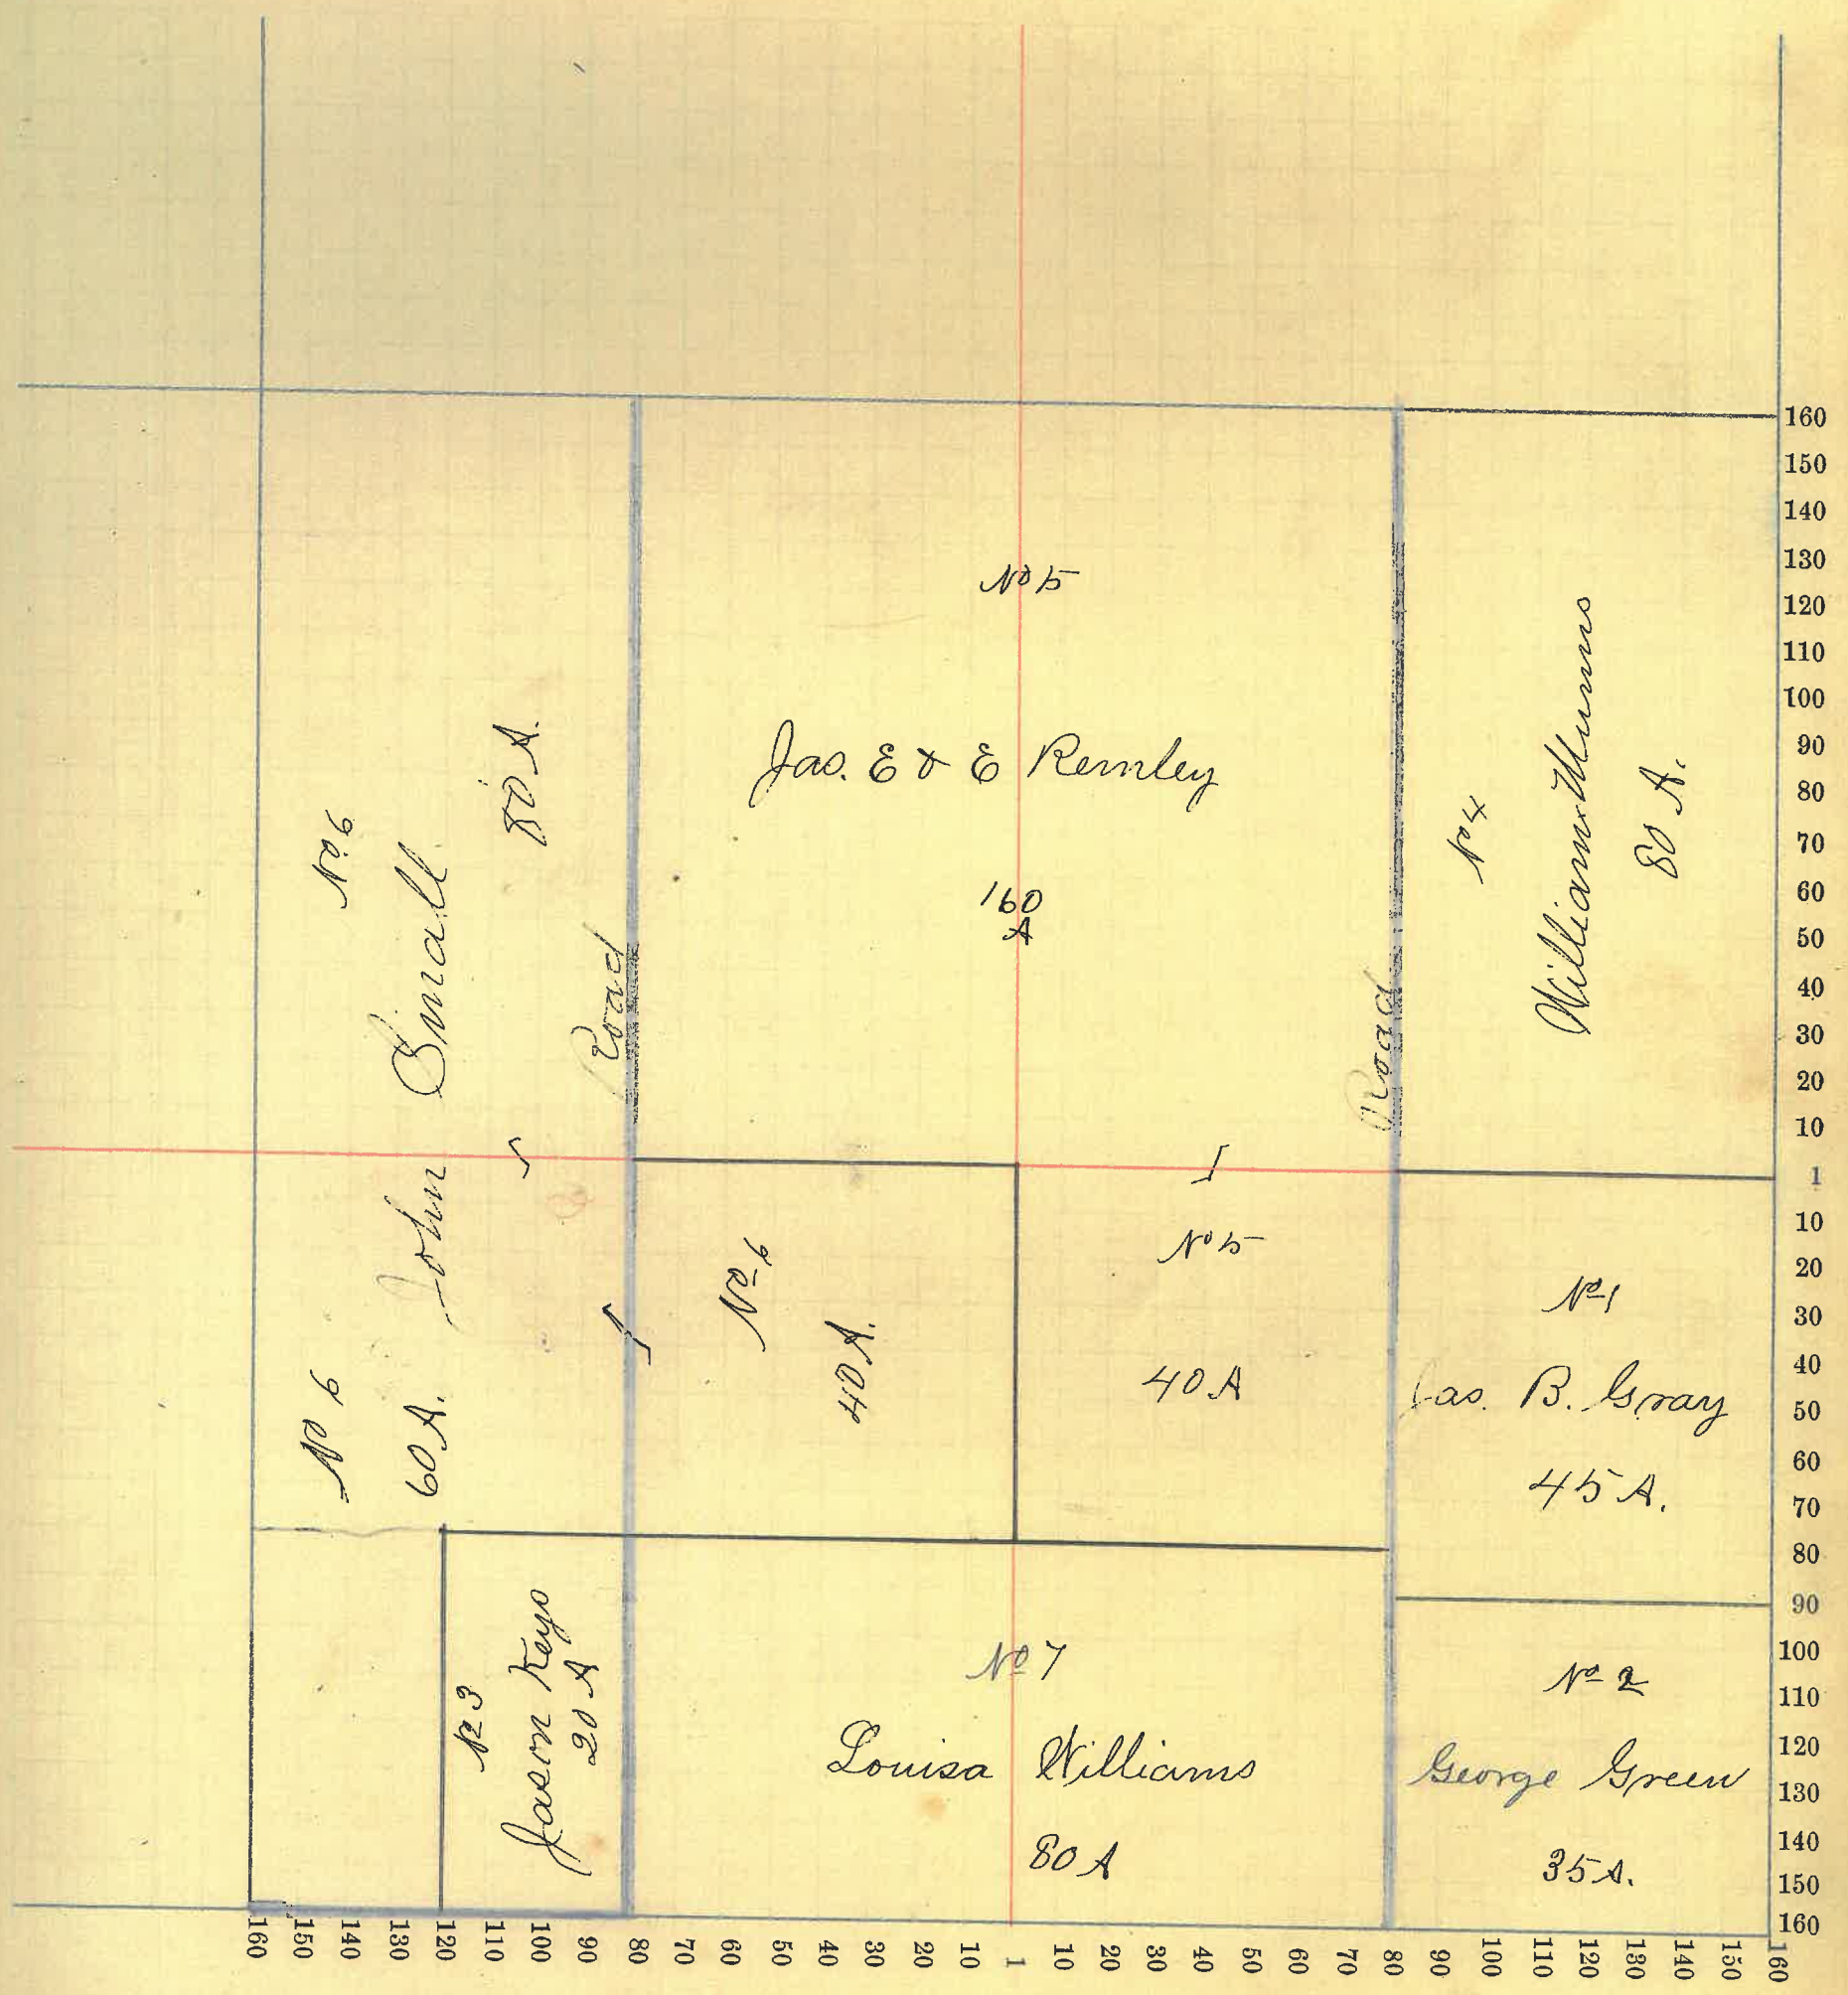 No 5
Jas. E & E Remley
160
A
No. 6
John Small
80 A.
Road
Road
No 4
William Munns
80 A.
No 6
60 A.
No 6
40 A.
No 5
40 A
No 1
Jas. B. Gray
45 A.
No 3
Jason Keys
20 A
No 7
Louisa Williams
80 A
No 2
George Green
35 A.
160
150
140
130
120
110
100
90
80
70
60
50
40
30
20
10
1
10
20
30
40
50
60
70
80
90
100
110
120
130
140
150
160
160 150 140 130 120 110 100 90 80 70 60 50 40 30 20 10 1 10 20 30 40 50 60 70 80 90 100 110 120 130 140 150 160